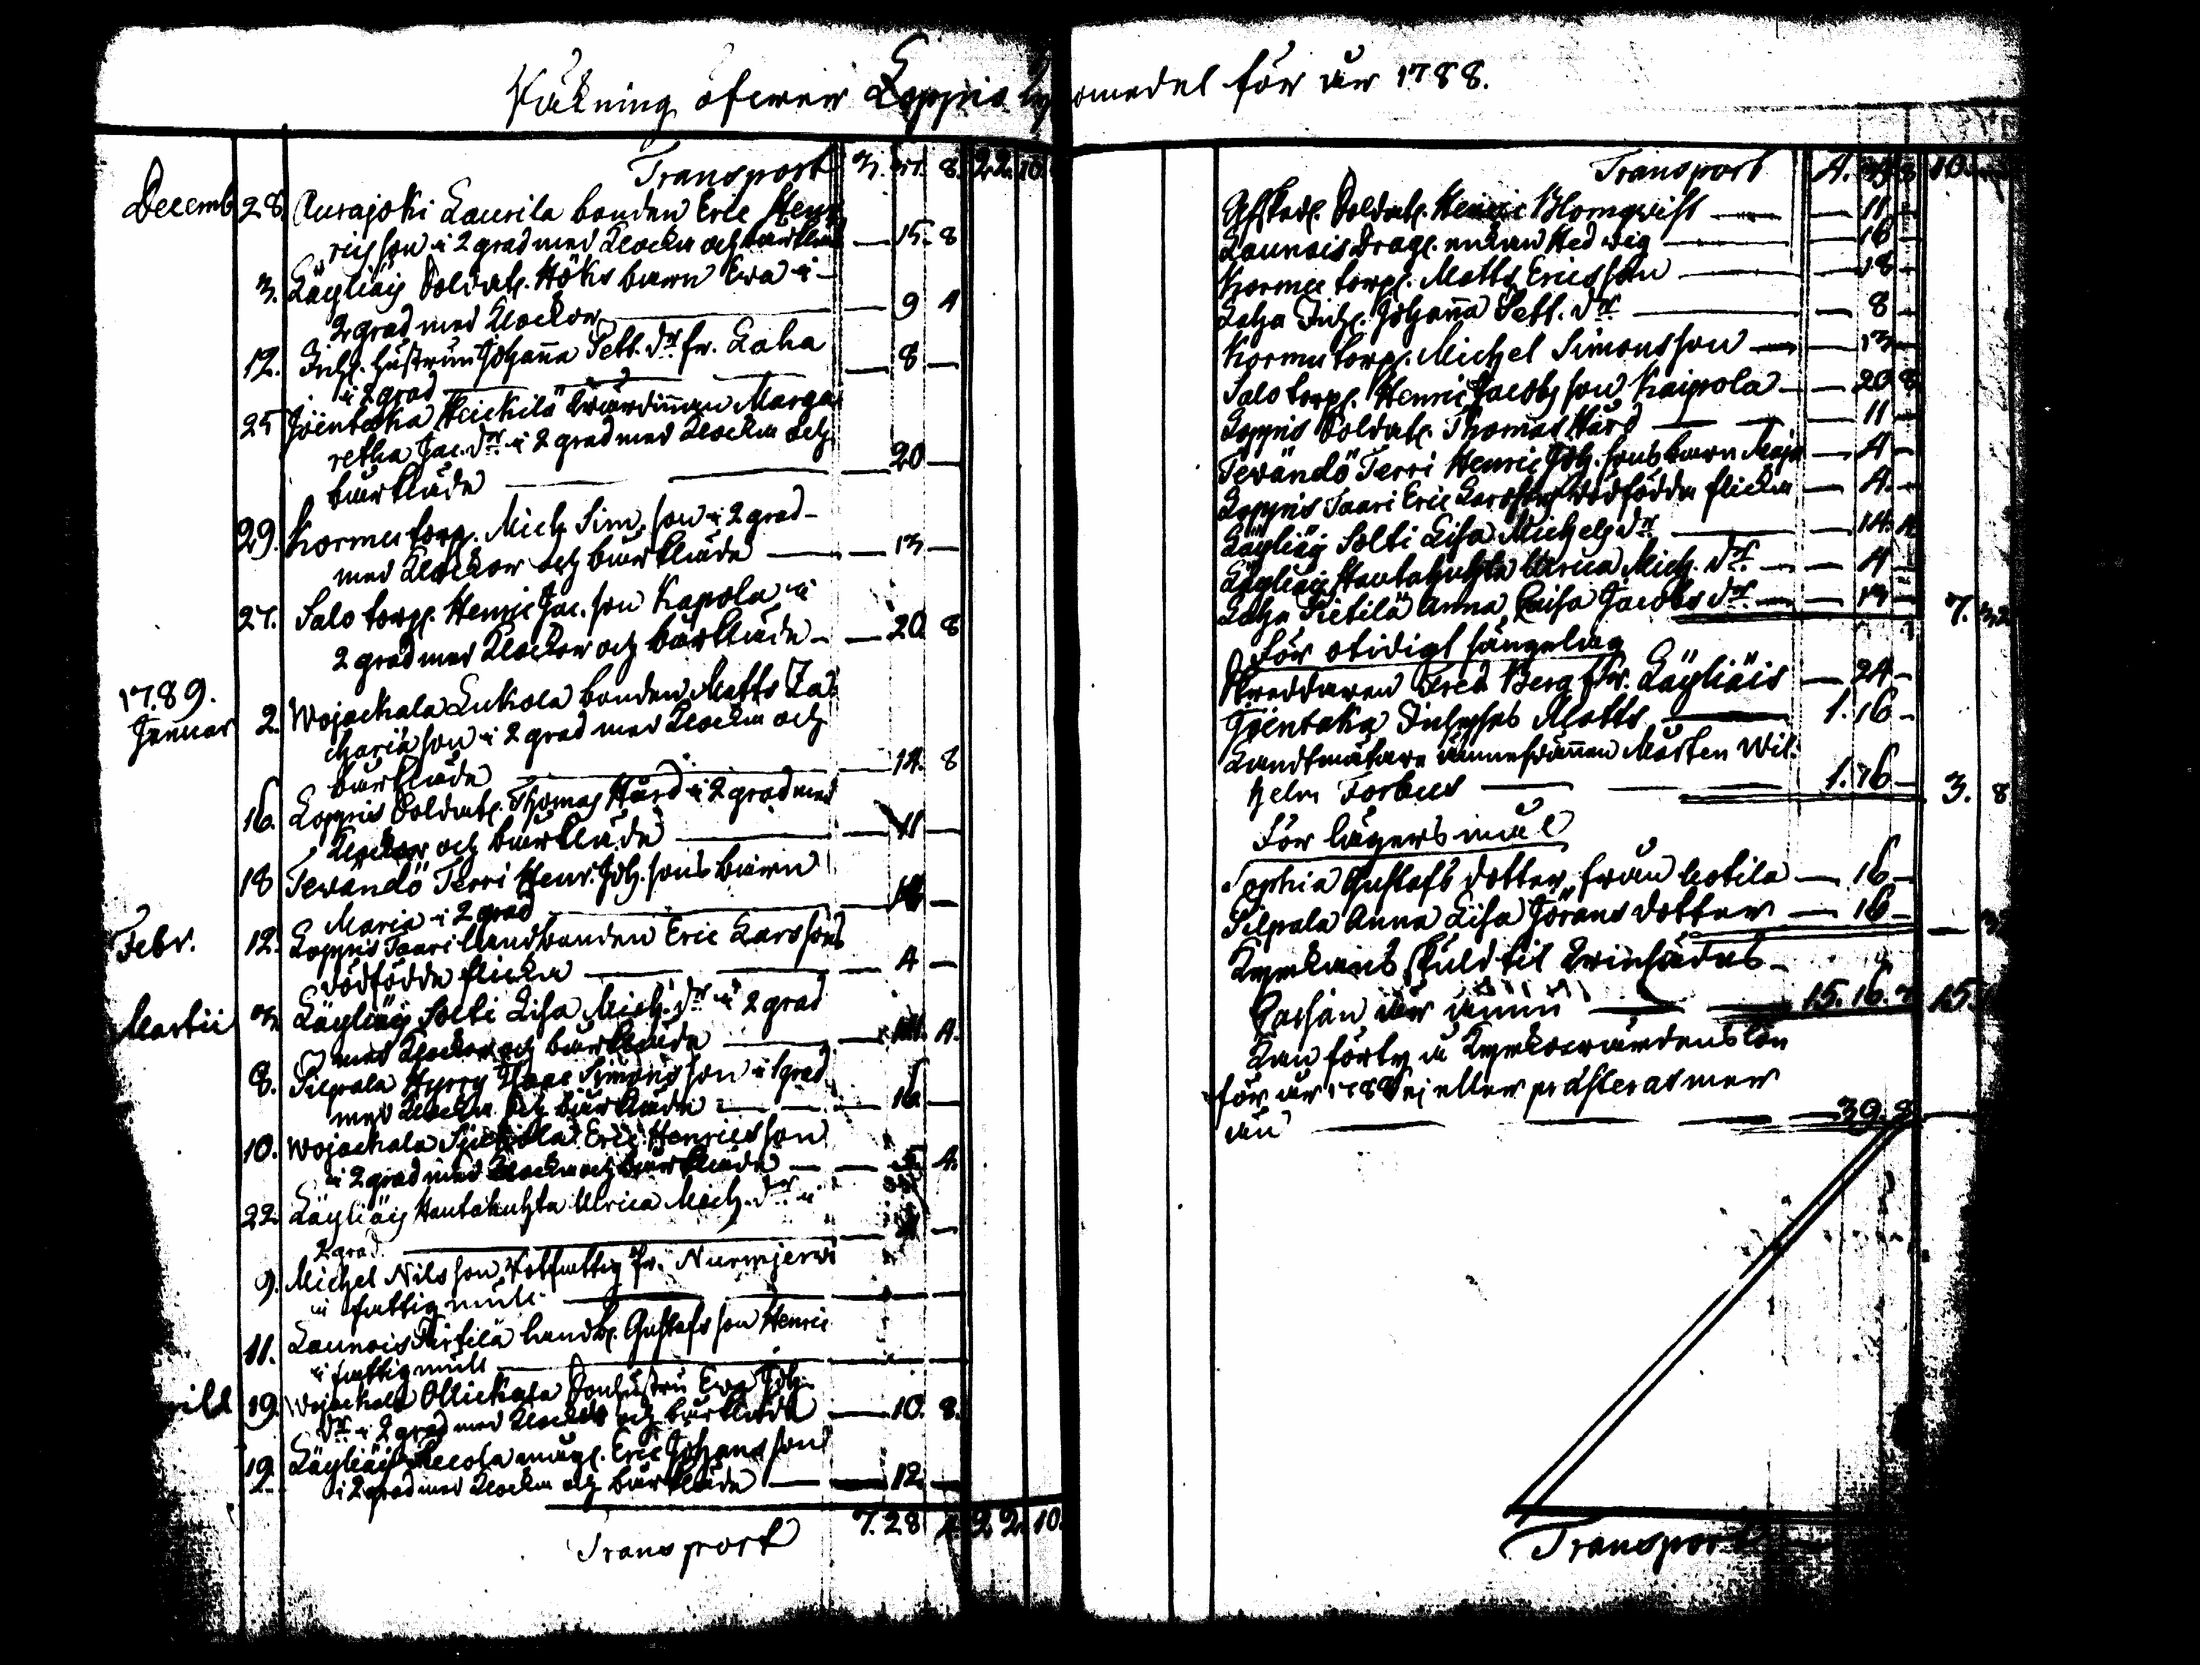 Räkning öfwer Loppis Ky omedel för år 1788.
Transport 3. 31. 8. 22. 10.
Decemb 28. Aurajoki Laurila bonden Eric Hen
richson i 2 grad med klocka och bårkläde — 15. 8
3. Läyliäis Soldat. Höks barn Ewa i
2 grad med klockor — 9 4
12. Inh. hustrun Johanna Seff. dr fr. Laha
i 2 grad — 8 —
25 Joentaka Heickilä wärdinnan Marga
retha Jac. dr i 2 grad med klocka och
bårkläde — 20 —
29. Kormu torp. Mich. Sim. son i 2 grad
med klockor och bårkläde — 13 —
27. Salo torp. Henric Jac. son Kapola i
2 grad med klockor och bårkläde — 20 8
1789.
Januar 2. Wojackala Lukola bonden Matts Za
chariæ son i 2 grad med klocka och
bårkläde — 14. 8
16. Loppis Soldat. Thomas Hård i 2 grad med
klockor och bårkläde — 11 —
18 Tewändö Terri Henr. Joh. sons barn
Maria i 2 grad —
Febr. 12. Loppis Saari landbonden Eric Larssons
dödfödda flicka — 4 —
Martii 3 Läyliäis Solti Lisa Mich. dr i 2 grad
med klockor och bårkläde — 14. 4.
8. Pilpala Hyrry Isaac Simonsson i 1 grad
med klocka och bårkläde — 16 —
10. Wojackala Eric Henricsson
i 2 grad med klocka och bårkläde — 5 4.
22. Läyliäis Hautakuhta Ulrica Mich. dr i
2 grad. — 4 —
9. Michel Nilsson fr. Nurmjerwi
i fattigmull —
11. Launois Pirtilä landb. Gustafsson Henric
i fattigmull —
ill 19. Wojackala Ollickala Sonhustru Ewa Joh.
dr i 2 grad med klocka och bårkläde — 10. 8.
19. Läyliäis Eric Johansson
2 i 2 grad med klocka och bårkläde — 12. —
Transport 7. 28 4. 22. 10.
Transport 4. 10.
Afsked. Soldat. Henric Blomqwist — 11 —
Launois Drag. enkan Hedwig — 16 —
Kormu torp. Matts Ericsson — 18 —
Laha Inh. Johanna Seff. dr — 8 —
Kormu torp. Michel Simonsson — 13 —
Salo torp. Henric Jacobsson Kaipola — 20 8
Loppis Soldat. Thomas Hård — 11 —
Tewändö Terri Henric Joh. sons barn Maja — 4 —
Loppis Saari Eric Larssons dödfödda flicka — 4. —
Läyliäis Solti Lisa Michels dr — 14. 4
Läyliäis Hautakuhta Ulrica Mich. dr — 4 —
Laha Pietilä Anna Caisa Jacobs dr — 13 — 7. 32
För otidigt sängelag
Skreddaren Fred. Berg fr. Läyliäis — 24 —
Joentaka Inhyses Matts — 1. 16 —
Landtmätare ämnesvännen Mårten Wil-
helm Forbus — 1. 16 — 3. 8
För lägersmål
Sophia Gustafs dotter från Kotila — 16 —
Pilpala Anna Lisa Jörans dotter — 16 —
Kyrkans skuld til
15. 16. 15.
Kan förty å Kyrkowärdens lön
för år 1788 ej eller præsteras mer
än — 39. 8
Transport